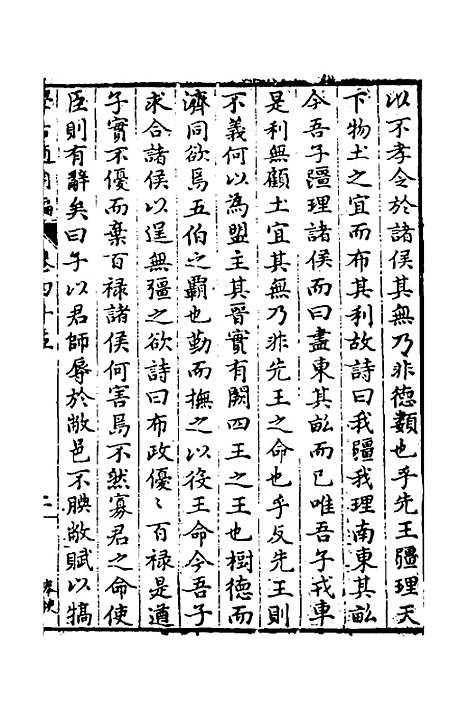 以不孝令於諸侯其無乃非德類也乎先王疆理天
下物土之宜而布其利故詩曰我疆我理南東其畝
今吾子疆理諸侯而曰盡東其畝而已唯吾子戎車
是利無顧土宜其無乃非先王之命也乎反先王則
不義何以為盟主其晉實有闕四王之王也樹德而
濟同欲焉五伯之霸也勤而撫之以役王命今吾子
求合諸侯以逞無疆之欲詩曰布政優〻百禄是遒
子實不優而棄百禄諸侯何害焉不然寡君之命使
臣則有辭矣曰子以君師辱於敝邑不腆敝賦以犒
卷四十五